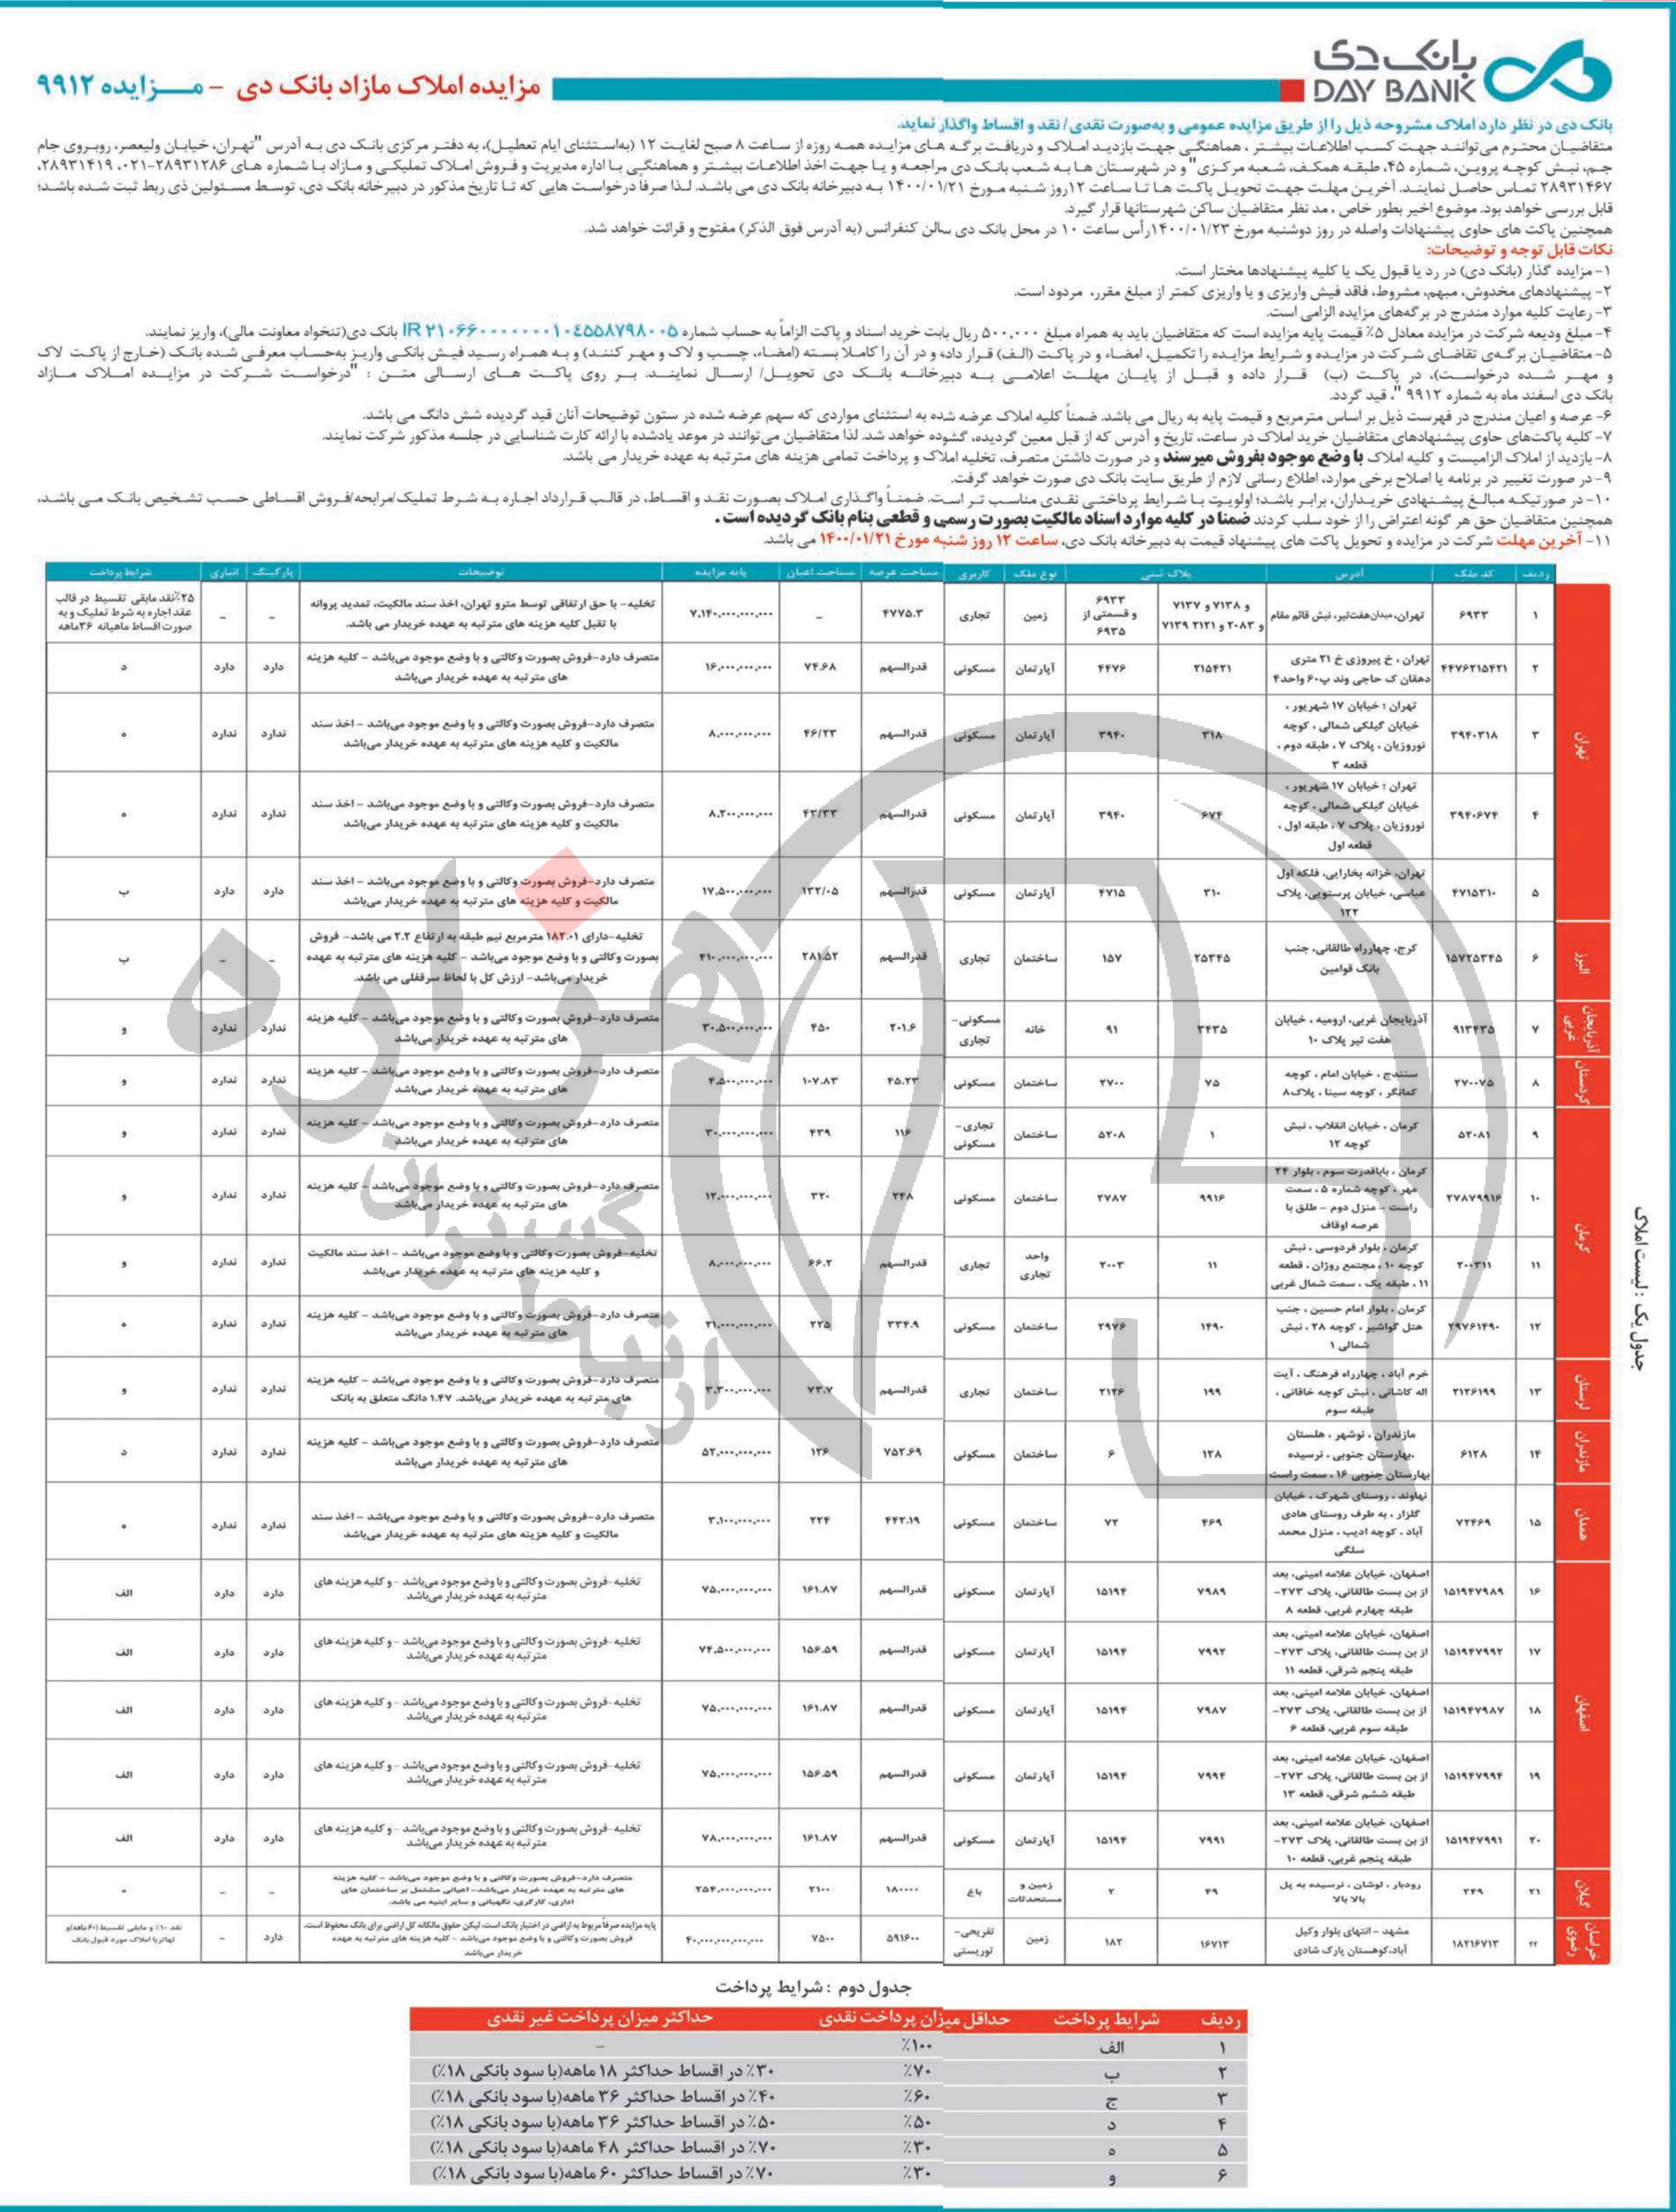 بانک دی
DAY BANK
مزایده املاک مازاد بانک دی - مـــزایده ۹۹۱۲
بانک دی در نظر دارد املاک مشروحه ذیل را از طریق مزایده عمومی و به‌صورت نقدی/ نقد و اقساط واگذار نماید.
متقاضیان محترم می‌توانند جهت کسب اطلاعات بیشتر ، هماهنگی جهت بازدید املاک و دریافت برگه های مزایده همه روزه از ساعت ۸ صبح لغایت ۱۲ (به‌استثنای ایام تعطیل)، به دفتر مرکزی بانک دی به آدرس "تهران، خیابان ولیعصر، روبروی جام
جم، نبش کوچه پروین، شماره ۴۵، طبقه همکف، شعبه مرکزی" و در شهرستان ها به شعب بانک دی مراجعه و یا جهت اخذ اطلاعات بیشتر و هماهنگی با اداره مدیریت و فروش املاک تملیکی و مازاد با شماره های ۲۸۹۳۱۲۸۶-۰۲۱، ۲۸۹۳۱۴۱۹،
۲۸۹۳۱۴۶۷ تماس حاصل نمایند. آخرین مهلت جهت تحویل پاکت ها تا ساعت ۱۲روز شنبه مورخ ۱۴۰۰/۰۱/۲۱ به دبیرخانه بانک دی می باشد. لذا صرفا درخواست هایی که تا تاریخ مذکور در دبیرخانه بانک دی، توسط مسئولین ذی ربط ثبت شده باشد؛
قابل بررسی خواهد بود. موضوع اخیر بطور خاص ، مد نظر متقاضیان ساکن شهرستانها قرار گیرد.
همچنین پاکت های حاوی پیشنهادات واصله در روز دوشنبه مورخ ۱۴۰۰/۰۱/۲۳رأس ساعت ۱۰ در محل بانک دی سالن کنفرانس (به آدرس فوق الذکر) مفتوح و قرائت خواهد شد.
نکات قابل توجه و توضیحات:
۱- مزایده گذار (بانک دی) در رد یا قبول یک یا کلیه پیشنهادها مختار است.
۲- پیشنهادهای مخدوش، مبهم، مشروط، فاقد فیش واریزی و یا واریزی کمتر از مبلغ مقرر، مردود است.
۳- رعایت کلیه موارد مندرج در برگه‌های مزایده الزامی است.
۴- مبلغ ودیعه شرکت در مزایده معادل ۵٪ قیمت پایه مزایده است که متقاضیان باید به همراه مبلغ ۵۰۰,۰۰۰ ریال بابت خرید اسناد و پاکت الزاماً به حساب شماره بانک دی(تنخواه معاونت مالی)، واریز نمایند.
۵- متقاضیان برگه‌ی تقاضای شرکت در مزایده و شرایط مزایده را تکمیل، امضاء و در پاکت (الف) قرار داده و در آن را کاملا بسته (امضاء، چسب و لاک و مهر کنند) و به همراه رسید فیش بانکی واریز به‌حساب معرفی شده بانک (خارج از پاکت لاک
و مهر شده درخواست)، در پاکت (ب) قرار داده و قبل از پایان مهلت اعلامی به دبیرخانه بانک دی تحویل/ ارسال نمایند. بر روی پاکت های ارسالی متن : "درخواست شرکت در مزایده املاک مازاد
بانک دی اسفند ماه به شماره ۹۹۱۲ "، قید گردد.
۶- عرصه و اعیان مندرج در فهرست ذیل بر اساس مترمربع و قیمت پایه به ریال می باشد. ضمناً کلیه املاک عرضه شده به استثنای مواردی که سهم عرضه شده در ستون توضیحات آنان قید گردیده شش دانگ می باشد.
۷- کلیه پاکت‌های حاوی پیشنهادهای متقاضیان خرید املاک در ساعت، تاریخ و آدرس که از قبل معین گردیده، گشوده خواهد شد. لذا متقاضیان می‌توانند در موعد یادشده با ارائه کارت شناسایی در جلسه مذکور شرکت نمایند.
۸- بازدید از املاک الزامیست و کلیه املاک با وضع موجود بفروش میرسند و در صورت داشتن متصرف، تخلیه املاک و پرداخت تمامی هزینه های مترتبه به عهده خریدار می باشد.
۹- در صورت تغییر در برنامه یا اصلاح برخی موارد، اطلاع رسانی لازم از طریق سایت بانک دی صورت خواهد گرفت.
۱۰- در صورتیکه مبالغ پیشنهادی خریداران، برابر باشد؛ اولویت با شرایط پرداختی نقدی مناسب تر است. ضمناً واگذاری املاک بصورت نقد و اقساط، در قالب قرارداد اجاره به شرط تملیک/مرابحه/فروش اقساطی حسب تشخیص بانک می باشد،
همچنین متقاضیان حق هر گونه اعتراض را از خود سلب کردند ضمنا در کلیه موارد اسناد مالکیت بصورت رسمی و قطعی بنام بانک گردیده است .
۱۱- آخرین مهلت شرکت در مزایده و تحویل پاکت های پیشنهاد قیمت به دبیرخانه بانک دی، ساعت ۱۲ روز شنبه مورخ ۱۴۰۰/۰۱/۲۱ می باشد.
جدول یک : لیست املاک
ردیف کد ملک آدرس پلاک ثبتی نوع ملک کاربری مساحت عرصه مساحت اعیان پایه مزایده توضیحات پارکینگ انباری شرایط پرداخت
تهران
۱ ۶۹۳۳ تهران، میدان هفت‌تیر، نبش قائم مقام و ۷۱۳۸ و ۷۱۳۷ و ۲۰۸۳ و ۲۱۲۱ ۷۱۳۹ ۶۹۳۳ و قسمتی از ۶۹۳۵ زمین تجاری ۴۷۷۵.۳ – ۷,۱۴۰,۰۰۰,۰۰۰,۰۰۰
تخلیه- با حق ارتفاقی توسط مترو تهران، اخذ سند مالکیت، تمدید پروانه
با تقبل کلیه هزینه های مترتبه به عهده خریدار می باشد. – –
۲۵٪نقد مابقی تقسیط در قالب
عقد اجاره به شرط تملیک و به
صورت اقساط ماهیانه ۳۶ماهه
۲ ۴۴۷۶۲۱۵۴۲۱ تهران ، خ پیروزی خ ۲۱ متری دهقان ک حاجی وند پ۶۰ واحد۴ ۲۱۵۴۲۱ ۴۴۷۶ آپارتمان مسکونی قدرالسهم ۷۴.۶۸ ۱۶,۰۰۰,۰۰۰,۰۰۰
متصرف دارد-فروش بصورت وکالتی و با وضع موجود می‌باشد - کلیه هزینه
های مترتبه به عهده خریدار می‌باشد دارد دارد د
۳ ۳۹۴۰۳۱۸ تهران ؛ خیابان ۱۷ شهریور ، خیابان گیلکی شمالی ، کوچه نوروزیان ، پلاک ۷ ، طبقه دوم ، قطعه ۳ ۳۱۸ ۳۹۴۰ آپارتمان مسکونی قدرالسهم ۴۶/۲۳ ۸,۰۰۰,۰۰۰,۰۰۰
متصرف دارد-فروش بصورت وکالتی و با وضع موجود می‌باشد - اخذ سند
مالکیت و کلیه هزینه های مترتبه به عهده خریدار می‌باشد ندارد ندارد ه
۴ ۳۹۴۰۶۷۴ تهران ؛ خیابان ۱۷ شهریور ، خیابان گیلکی شمالی ، کوچه نوروزیان ، پلاک ۷ ، طبقه اول ، قطعه اول ۶۷۴ ۳۹۴۰ آپارتمان مسکونی قدرالسهم ۴۳/۳۳ ۸,۲۰۰,۰۰۰,۰۰۰
متصرف دارد-فروش بصورت وکالتی و با وضع موجود می‌باشد - اخذ سند
مالکیت و کلیه هزینه های مترتبه به عهده خریدار می‌باشد ندارد ندارد ه
۵ ۴۷۱۵۳۱۰ تهران، خزانه بخارایی، فلکه اول عباسی، خیابان پرستویی، پلاک ۱۲۲ ۳۱۰ ۴۷۱۵ آپارتمان مسکونی قدرالسهم ۱۳۲/۰۵ ۱۷,۵۰۰,۰۰۰,۰۰۰
متصرف دارد-فروش بصورت وکالتی و با وضع موجود می‌باشد - اخذ سند
مالکیت و کلیه هزینه های مترتبه به عهده خریدار می‌باشد دارد دارد ب
البرز
۶ ۱۵۷۲۵۳۴۵ کرج، چهارراه طالقانی، جنب بانک قوامین ۲۵۳۴۵ ۱۵۷ ساختمان تجاری قدرالسهم ۲۸۱.۵۲ ۴۱۰,۰۰۰,۰۰۰,۰۰۰
تخلیه-دارای ۱۸۲.۰۱ مترمربع نیم طبقه به ارتفاع ۲.۲ می باشد- فروش
بصورت وکالتی و با وضع موجود می‌باشد - کلیه هزینه های مترتبه به عهده
خریدار می‌باشد- ارزش کل با لحاظ سرقفلی می باشد. – – ب
آذربایجان غربی
۷ ۹۱۳۴۳۵ آذربایجان غربی، ارومیه ، خیابان هفت تیر پلاک ۱۰ ۳۴۳۵ ۹۱ خانه مسکونی-تجاری ۲۰۱.۶ ۴۵۰ ۳۰,۵۰۰,۰۰۰,۰۰۰
متصرف دارد-فروش بصورت وکالتی و با وضع موجود می‌باشد - کلیه هزینه
های مترتبه به عهده خریدار می‌باشد ندارد ندارد و
کردستان
۸ ۲۷۰۰۷۵ سنندج ، خیابان امام ، کوچه کمانگر ، کوچه سینا ، پلاک۸ ۷۵ ۲۷۰۰ ساختمان مسکونی ۴۵.۲۳ ۱۰۷.۸۳ ۴,۵۰۰,۰۰۰,۰۰۰
متصرف دارد-فروش بصورت وکالتی و با وضع موجود می‌باشد - کلیه هزینه
های مترتبه به عهده خریدار می‌باشد ندارد ندارد و
کرمان
۹ ۵۲۰۸۱ کرمان ، خیابان انقلاب ، نبش کوچه ۱۲ ۱ ۵۲۰۸ ساختمان تجاری-مسکونی ۱۱۶ ۴۳۹ ۳۰,۰۰۰,۰۰۰,۰۰۰
متصرف دارد-فروش بصورت وکالتی و با وضع موجود می‌باشد - کلیه هزینه
های مترتبه به عهده خریدار می‌باشد ندارد ندارد و
۱۰ ۲۷۸۷۹۹۱۶ کرمان ، باباقدرت سوم ، بلوار ۲۴ مهر ، کوچه شماره ۵ ، سمت راست – منزل دوم – طلق با عرصه اوقاف ۹۹۱۶ ۲۷۸۷ ساختمان مسکونی ۲۴۸ ۳۲۰ ۱۲,۰۰۰,۰۰۰,۰۰۰
متصرف دارد-فروش بصورت وکالتی و با وضع موجود می‌باشد - کلیه هزینه
های مترتبه به عهده خریدار می‌باشد ندارد ندارد و
۱۱ ۲۰۰۳۱۱ کرمان ، بلوار فردوسی ، نبش کوچه ۱۰ ، مجتمع روژان ، قطعه ۱۱ ، طبقه یک ، سمت شمال غربی ۱۱ ۲۰۰۳ واحد تجاری تجاری قدرالسهم ۶۶.۲ ۸,۰۰۰,۰۰۰,۰۰۰
تخلیه-فروش بصورت وکالتی و با وضع موجود می‌باشد - اخذ سند مالکیت
و کلیه هزینه های مترتبه به عهده خریدار می‌باشد ندارد ندارد و
۱۲ ۲۹۷۶۱۴۹۰ کرمان ، بلوار امام حسین ، جنب هتل گواشیر ، کوچه ۲۸ ، نبش شمالی ۱ ۱۴۹۰ ۲۹۷۶ ساختمان مسکونی ۳۳۴.۹ ۲۲۵ ۲۱,۰۰۰,۰۰۰,۰۰۰
متصرف دارد-فروش بصورت وکالتی و با وضع موجود می‌باشد - کلیه هزینه
های مترتبه به عهده خریدار می‌باشد ندارد ندارد ه
لرستان
۱۳ ۲۱۲۶۱۹۹ خرم آباد ، چهارراه فرهنگ ، آیت اله کاشانی ، نبش کوچه خاقانی ، طبقه سوم ۱۹۹ ۲۱۲۶ ساختمان تجاری قدرالسهم ۷۳.۷ ۳,۳۰۰,۰۰۰,۰۰۰
متصرف دارد-فروش بصورت وکالتی و با وضع موجود می‌باشد - کلیه هزینه
های مترتبه به عهده خریدار می‌باشد. ۱.۴۷ دانگ متعلق به بانک ندارد ندارد و
مازندران
۱۴ ۶۱۲۸ مازندران ، نوشهر ، هلستان ،بهارستان جنوبی ، نرسیده بهارستان جنوبی ۱۶ ، سمت راست ۱۲۸ ۶ ساختمان مسکونی ۷۵۲.۶۹ ۱۲۶ ۵۲,۰۰۰,۰۰۰,۰۰۰
متصرف دارد-فروش بصورت وکالتی و با وضع موجود می‌باشد - کلیه هزینه
های مترتبه به عهده خریدار می‌باشد ندارد ندارد د
همدان
۱۵ ۷۲۴۶۹ نهاوند ، روستای شهرک ، خیابان گلزار ، به طرف روستای هادی آباد ، کوچه ادیب ، منزل محمد سلگی ۴۶۹ ۷۲ ساختمان مسکونی ۴۴۲.۱۹ ۲۲۴ ۳,۱۰۰,۰۰۰,۰۰۰
متصرف دارد-فروش بصورت وکالتی و با وضع موجود می‌باشد - اخذ سند
مالکیت و کلیه هزینه های مترتبه به عهده خریدار می‌باشد ندارد ندارد ه
اصفهان
۱۶ ۱۵۱۹۴۷۹۸۹ اصفهان، خیابان علامه امینی، بعد از بن بست طالقانی، پلاک ۲۷۳- طبقه چهارم غربی، قطعه ۸ ۷۹۸۹ ۱۵۱۹۴ آپارتمان مسکونی قدرالسهم ۱۶۱.۸۷ ۷۵,۰۰۰,۰۰۰,۰۰۰
تخلیه-فروش بصورت وکالتی و با وضع موجود می‌باشد -و کلیه هزینه های
مترتبه به عهده خریدار می‌باشد دارد دارد الف
۱۷ ۱۵۱۹۴۷۹۹۲ اصفهان، خیابان علامه امینی، بعد از بن بست طالقانی، پلاک ۲۷۳- طبقه پنجم شرقی، قطعه ۱۱ ۷۹۹۲ ۱۵۱۹۴ آپارتمان مسکونی قدرالسهم ۱۵۶.۵۹ ۷۴,۵۰۰,۰۰۰,۰۰۰
تخلیه-فروش بصورت وکالتی و با وضع موجود می‌باشد -و کلیه هزینه های
مترتبه به عهده خریدار می‌باشد دارد دارد الف
۱۸ ۱۵۱۹۴۷۹۸۷ اصفهان، خیابان علامه امینی، بعد از بن بست طالقانی، پلاک ۲۷۳- طبقه سوم غربی، قطعه ۶ ۷۹۸۷ ۱۵۱۹۴ آپارتمان مسکونی قدرالسهم ۱۶۱.۸۷ ۷۵,۰۰۰,۰۰۰,۰۰۰
تخلیه-فروش بصورت وکالتی و با وضع موجود می‌باشد -و کلیه هزینه های
مترتبه به عهده خریدار می‌باشد دارد دارد الف
۱۹ ۱۵۱۹۴۷۹۹۴ اصفهان، خیابان علامه امینی، بعد از بن بست طالقانی، پلاک ۲۷۳- طبقه ششم شرقی، قطعه ۱۳ ۷۹۹۴ ۱۵۱۹۴ آپارتمان مسکونی قدرالسهم ۱۵۶.۵۹ ۷۵,۰۰۰,۰۰۰,۰۰۰
تخلیه-فروش بصورت وکالتی و با وضع موجود می‌باشد -و کلیه هزینه های
مترتبه به عهده خریدار می‌باشد دارد دارد الف
۲۰ ۱۵۱۹۴۷۹۹۱ اصفهان، خیابان علامه امینی، بعد از بن بست طالقانی، پلاک ۲۷۳- طبقه پنجم غربی، قطعه ۱۰ ۷۹۹۱ ۱۵۱۹۴ آپارتمان مسکونی قدرالسهم ۱۶۱.۸۷ ۷۸,۰۰۰,۰۰۰,۰۰۰
تخلیه-فروش بصورت وکالتی و با وضع موجود می‌باشد -و کلیه هزینه های
مترتبه به عهده خریدار می‌باشد دارد دارد الف
گیلان
۲۱ ۲۴۹ رودبار ، لوشان ، نرسیده به پل بالا بالا ۴۹ ۲ زمین و مستحدثات باغ ۱۸۰۰۰۰ ۲۱۰۰ ۲۵۴,۰۰۰,۰۰۰,۰۰۰
متصرف دارد-فروش بصورت وکالتی و با وضع موجود می‌باشد - کلیه هزینه
های مترتبه به عهده خریدار می‌باشد- اعیانی مشتمل بر ساختمان های
اداری، کارگری، نگهبانی و سایر ابنیه می باشد. – –
خراسان رضوی
۲۲ ۱۸۲۱۶۷۱۳ مشهد - انتهای بلوار وکیل آباد،کوهستان پارک شادی ۱۶۷۱۳ ۱۸۲ زمین تفریحی-توریستی ۵۹۱۶۰۰ ۷۵۰۰ ۴۰,۰۰۰,۰۰۰,۰۰۰,۰۰۰
پایه مزایده صرفاً مربوط به اراضی در اختیار بانک است، لیکن حقوق مالکانه کل اراضی برای بانک محفوظ است.
فروش بصورت وکالتی و با وضع موجود می‌باشد - کلیه هزینه های مترتبه به عهده
خریدار می‌باشد دارد –
نقد ۱۰٪ و مابقی تقسیط (۶۰ ماهه)و
تهاتر با املاک مورد قبول بانک
جدول دوم : شرایط پرداخت
ردیف شرایط پرداخت حداقل میزان پرداخت نقدی حداکثر میزان پرداخت غیر نقدی
۱ الف ۱۰۰٪ –
۲ ب ۷۰٪ ۳۰٪ در اقساط حداکثر ۱۸ ماهه(با سود بانکی ۱۸٪)
۳ ج ۶۰٪ ۴۰٪ در اقساط حداکثر ۳۶ ماهه(با سود بانکی ۱۸٪)
۴ د ۵۰٪ ۵۰٪ در اقساط حداکثر ۳۶ ماهه(با سود بانکی ۱۸٪)
۵ ه ۳۰٪ ۷۰٪ در اقساط حداکثر ۴۸ ماهه(با سود بانکی ۱۸٪)
۶ و ۳۰٪ ۷۰٪ در اقساط حداکثر ۶۰ ماهه(با سود بانکی ۱۸٪)
هزاره
ارتباط گستران